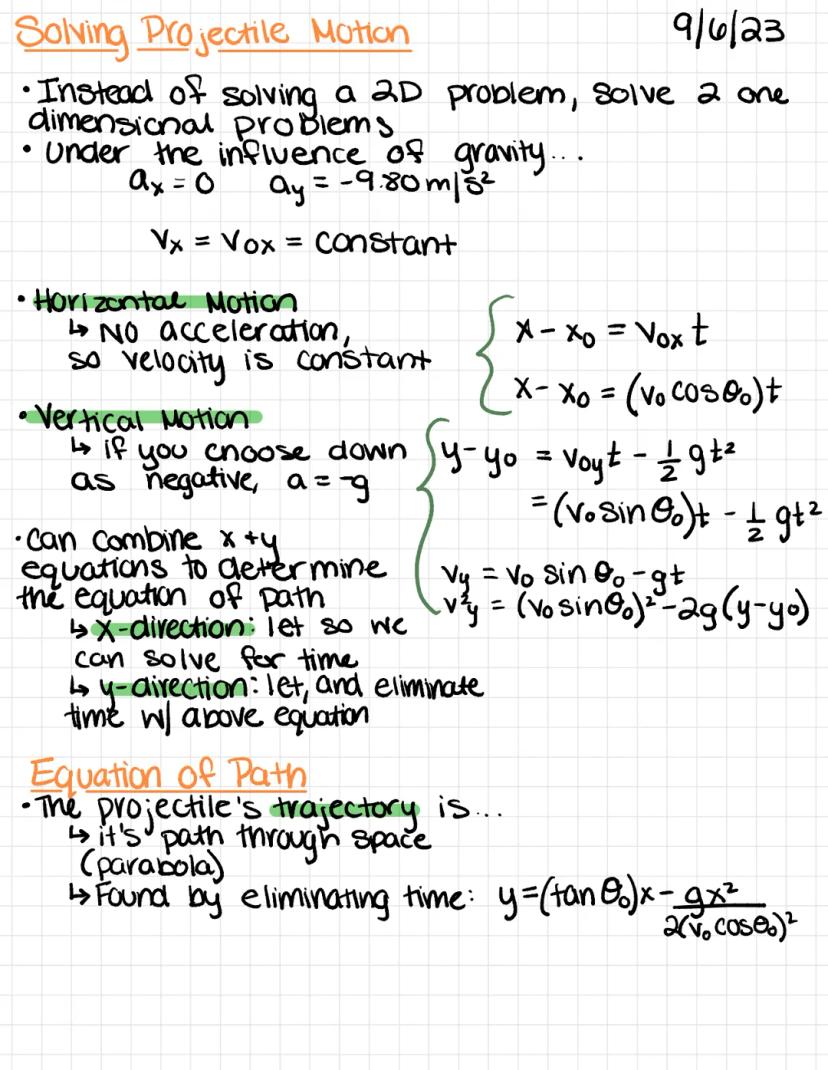 Solving Projectile Motion 9/6/23
• Instead of solving a 2D problem, solve 2 one
dimensional problems
• Under the influence of gravity...
ax = 0 ay = -9.80 m/s²
Vx = Vox = constant
• Horizontal Motion
↳ No acceleration,
so velocity is constant
x - x₀ = Vox t
x - x₀ = (v₀ cos θ₀)t
• Vertical Motion
↳ if you choose down
as negative, a = -g
y - y₀ = v₀yt - ½ gt²
= (v₀ sin θ₀)t - ½ gt²
Vy = v₀ sin θ₀ - gt
v²y = (v₀ sin θ₀)² - 2g(y - y₀)
• Can combine x + y
equations to determine
the equation of path
↳ x-direction: let so we
can solve for time
↳ y-direction: let, and eliminate
time w/ above equation
Equation of Path
• The projectile's trajectory is...
↳ it's path through space
(parabola)
↳ Found by eliminating time: y = (tan θ₀)x - gx² / 2(v₀ cos θ₀)²